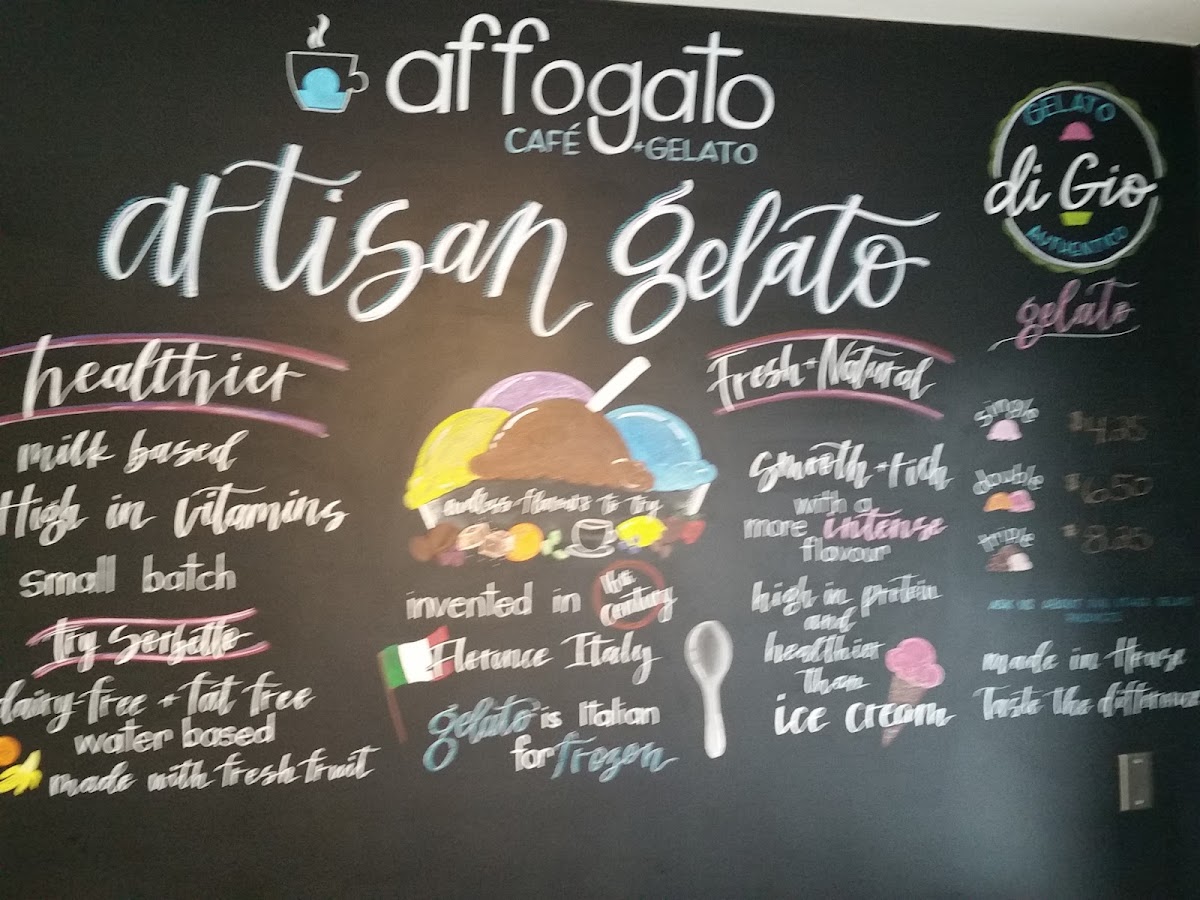 affogato
CAFÉ + GELATO
artisan gelato
GELATO
di Gio
AUTHENTICO
healthier
milk based
High in vitamins
small batch
try sorbetto
dairy-free + fat free
water based
made with fresh fruit
endless flavours to try
invented in 16th century
Florence Italy
gelato is Italian
for frozen
Fresh + Natural
smooth + rich
with a
more intense
flavour
high in protein
and
healthier
than
ice cream
gelato
single $4.25
double $6.50
triple $8.25
made in House
Taste the difference